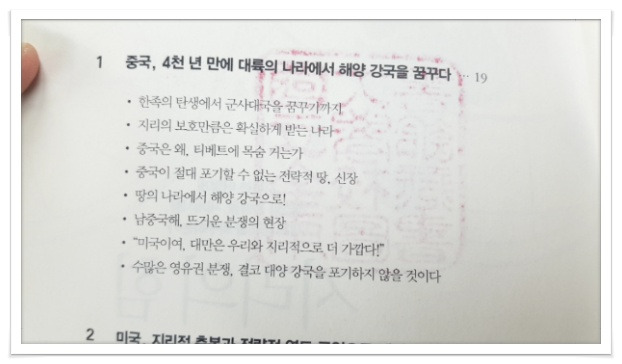 1 중국, 4천 년 만에 대륙의 나라에서 해양 강국을 꿈꾸다 ··· 19
• 한족의 탄생에서 군사대국을 꿈꾸기까지
• 지리의 보호만큼은 확실하게 받는 나라
• 중국은 왜, 티베트에 목숨 거는가
• 중국이 절대 포기할 수 없는 전략적 땅, 신장
• 땅의 나라에서 해양 강국으로!
• 남중국해, 뜨거운 분쟁의 현장
• “미국이여, 대만은 우리와 지리적으로 더 가깝다!”
• 수많은 영유권 분쟁, 결코 대양 강국을 포기하지 않을 것이다
2 미국, 지리적